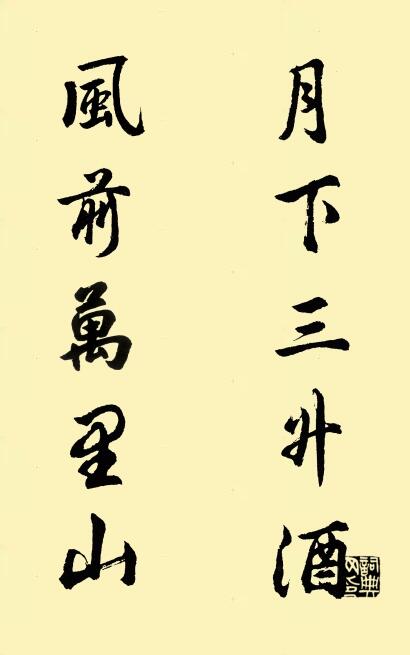 月下三升酒
風前萬里山